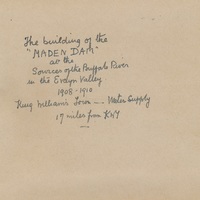 The building of the
"MADEN DAM"
at the
Sources of the Buffalo River
in the Evelyn Valley
1908-1910
King William's Town — Water Supply
17 miles from KWT